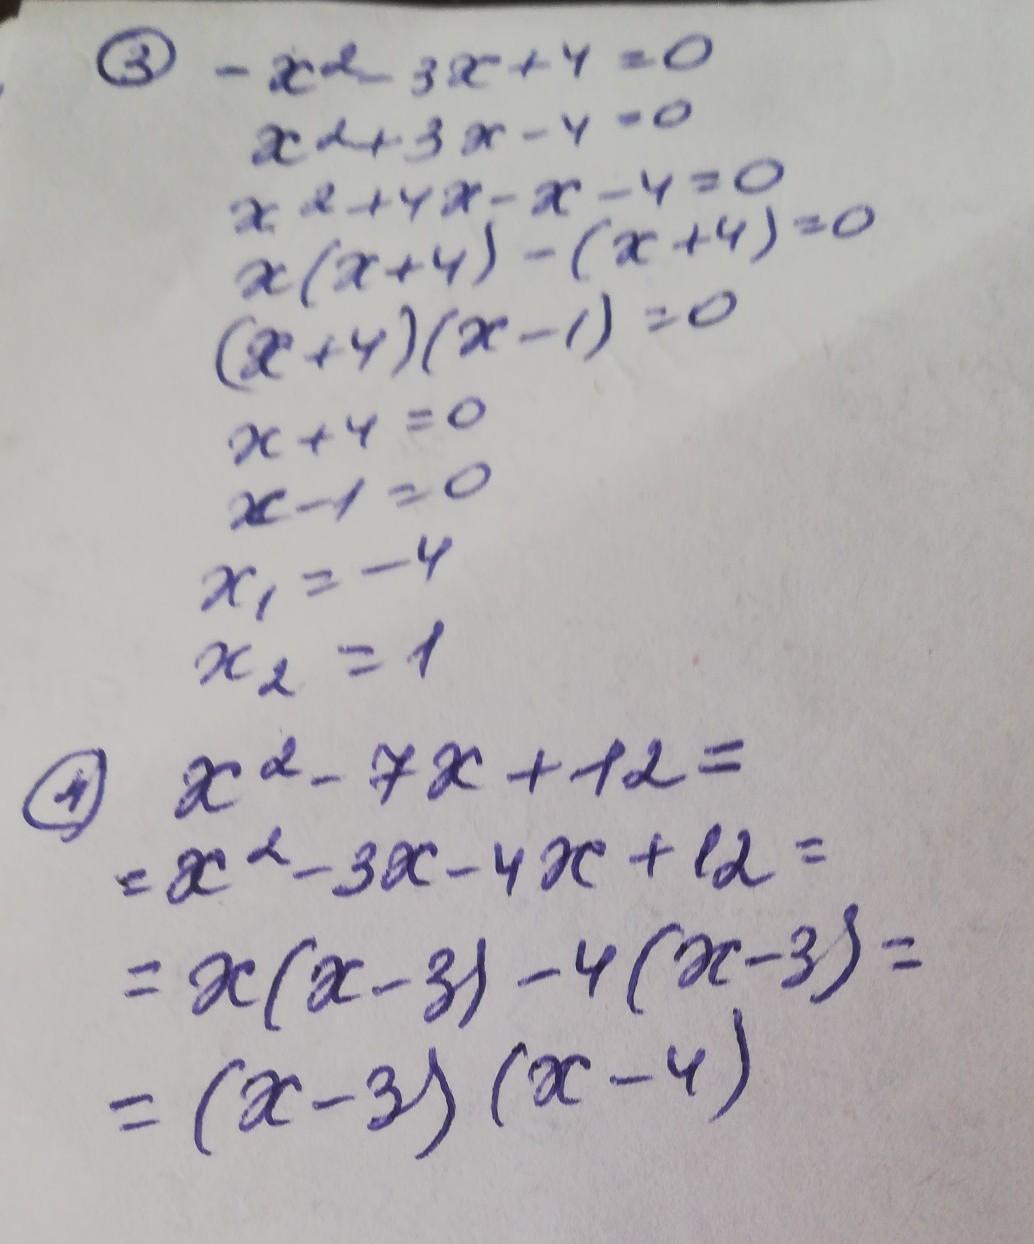 ③ -x²-3x+4=0
x²+3x-4=0
x²+4x-x-4=0
x(x+4)-(x+4)=0
(x+4)(x-1)=0
x+4=0
x-1=0
x₁=-4
x₂=1
④ x²-7x+12=
=x²-3x-4x+12=
=x(x-3)-4(x-3)=
=(x-3)(x-4)